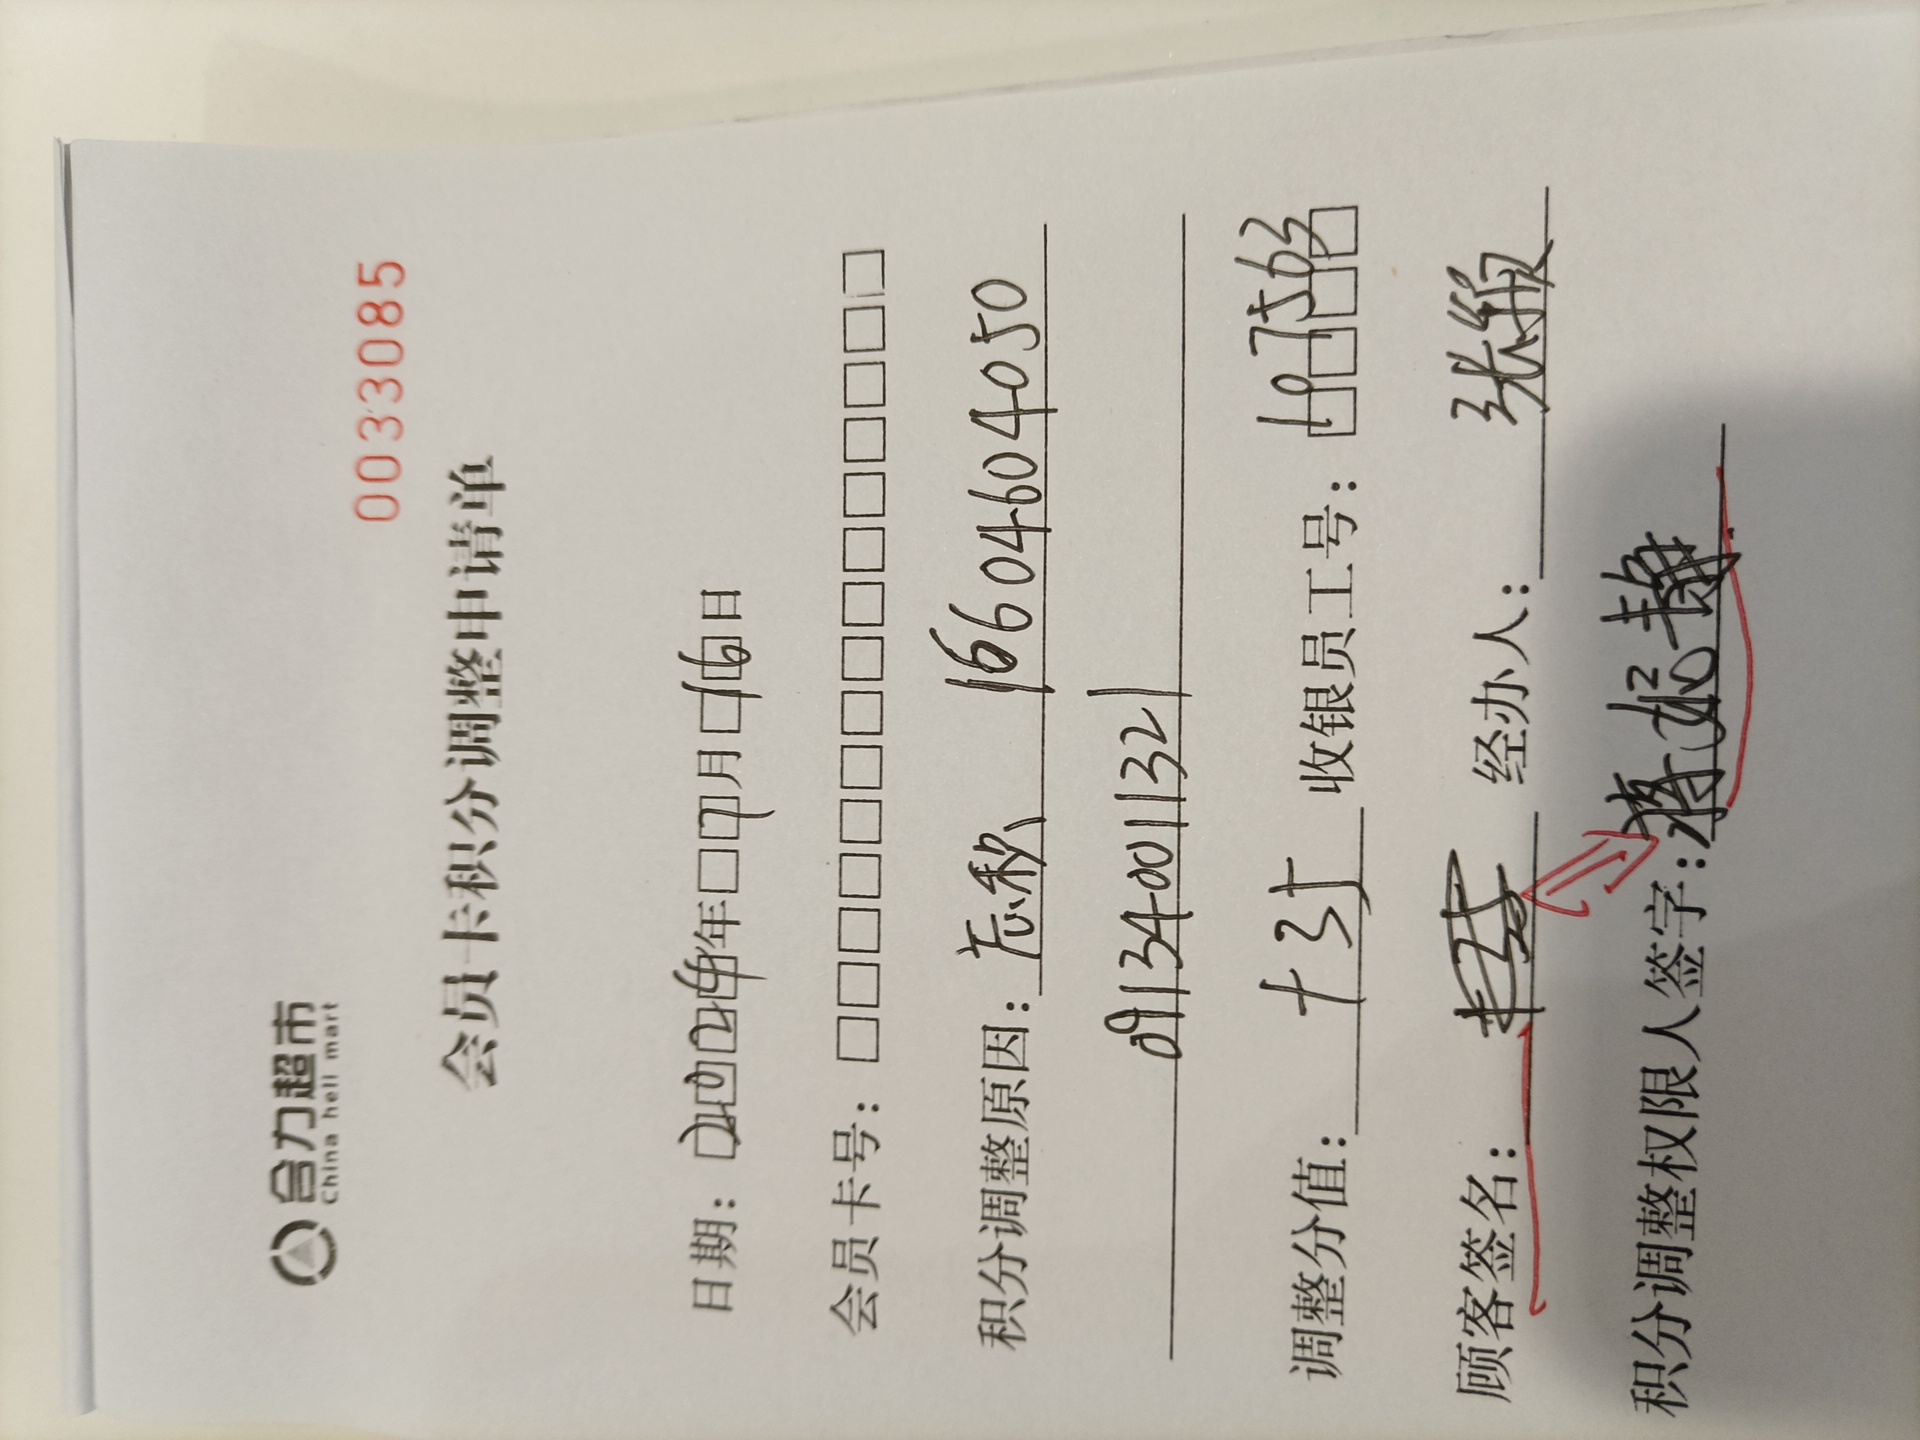 合力超市
China heli mart
0033085
会员卡积分调整申请单
日期：2024年7月16日
会员卡号：
积分调整原因：忘积 16604604050
09134001132
调整分值：+35 收银员工号：107563
顾客签名： 经办人：张颖
积分调整权限人签字：